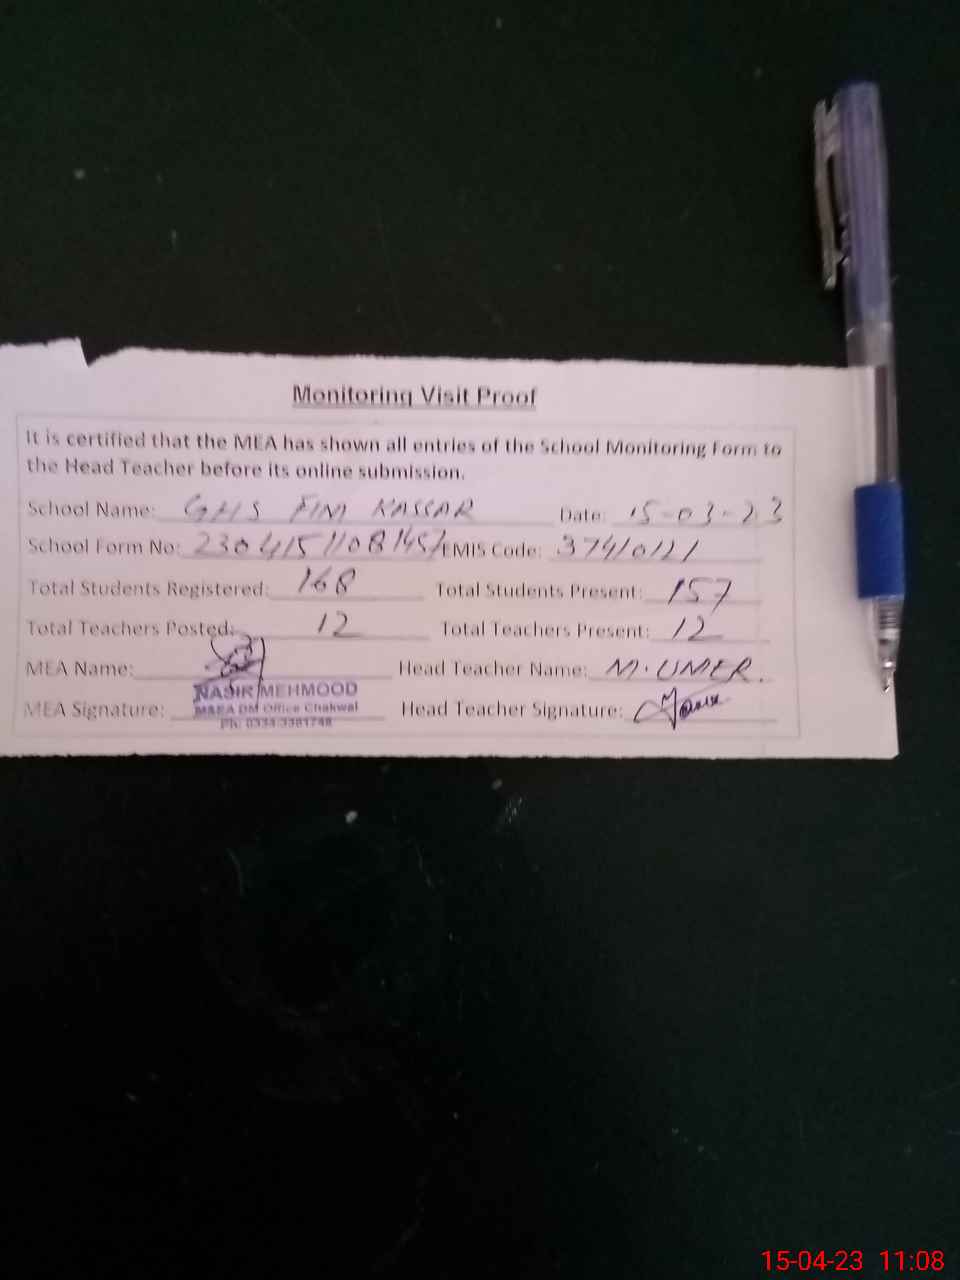 Monitoring Visit Proof
It is certified that the MEA has shown all entries of the School Monitoring Form to
the Head Teacher before its online submission.
School Name: GHS FIM KASSAR Date: 15-03-23
School Form No: 2304151108145/ EMIS Code: 37410121
Total Students Registered: 168 Total Students Present: 157
Total Teachers Posted: 12 Total Teachers Present: 12
MEA Name: Head Teacher Name: M. UMER.
NASIR MEHMOOD
MEA Signature: M&EA DM Office Chakwal Head Teacher Signature:
Ph: 0334-3381748
15-04-23 11:08